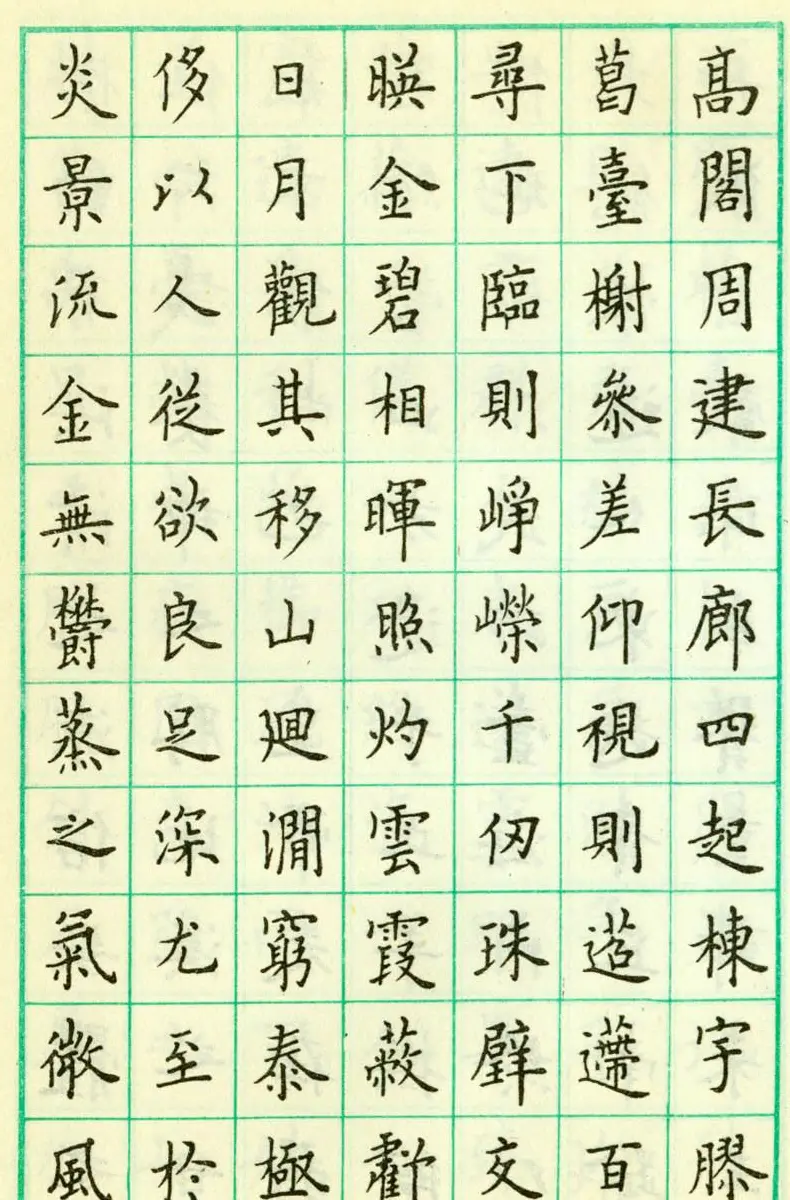 髙閣周建長廊四起棟宇膠
葛臺榭叅差仰視則迢遰百
尋下臨則崢嶸千仞珠璧交
暎金碧相暉照灼雲霞蔽虧
日月觀其移山廻澗窮泰極
侈以人從欲良足深尤至於
炎景流金無鬱蒸之氣微風